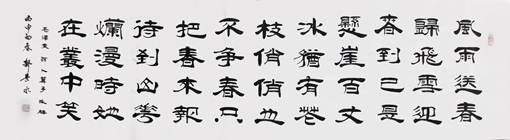 風雨送春
歸飛雪迎
春到已是
懸崖百丈
冰猶有花
枝俏俏也
不争春只
把春來報
待到山花
爛漫時她
在叢中笑
毛澤東 詞 卜算子 咏梅
丙申初春